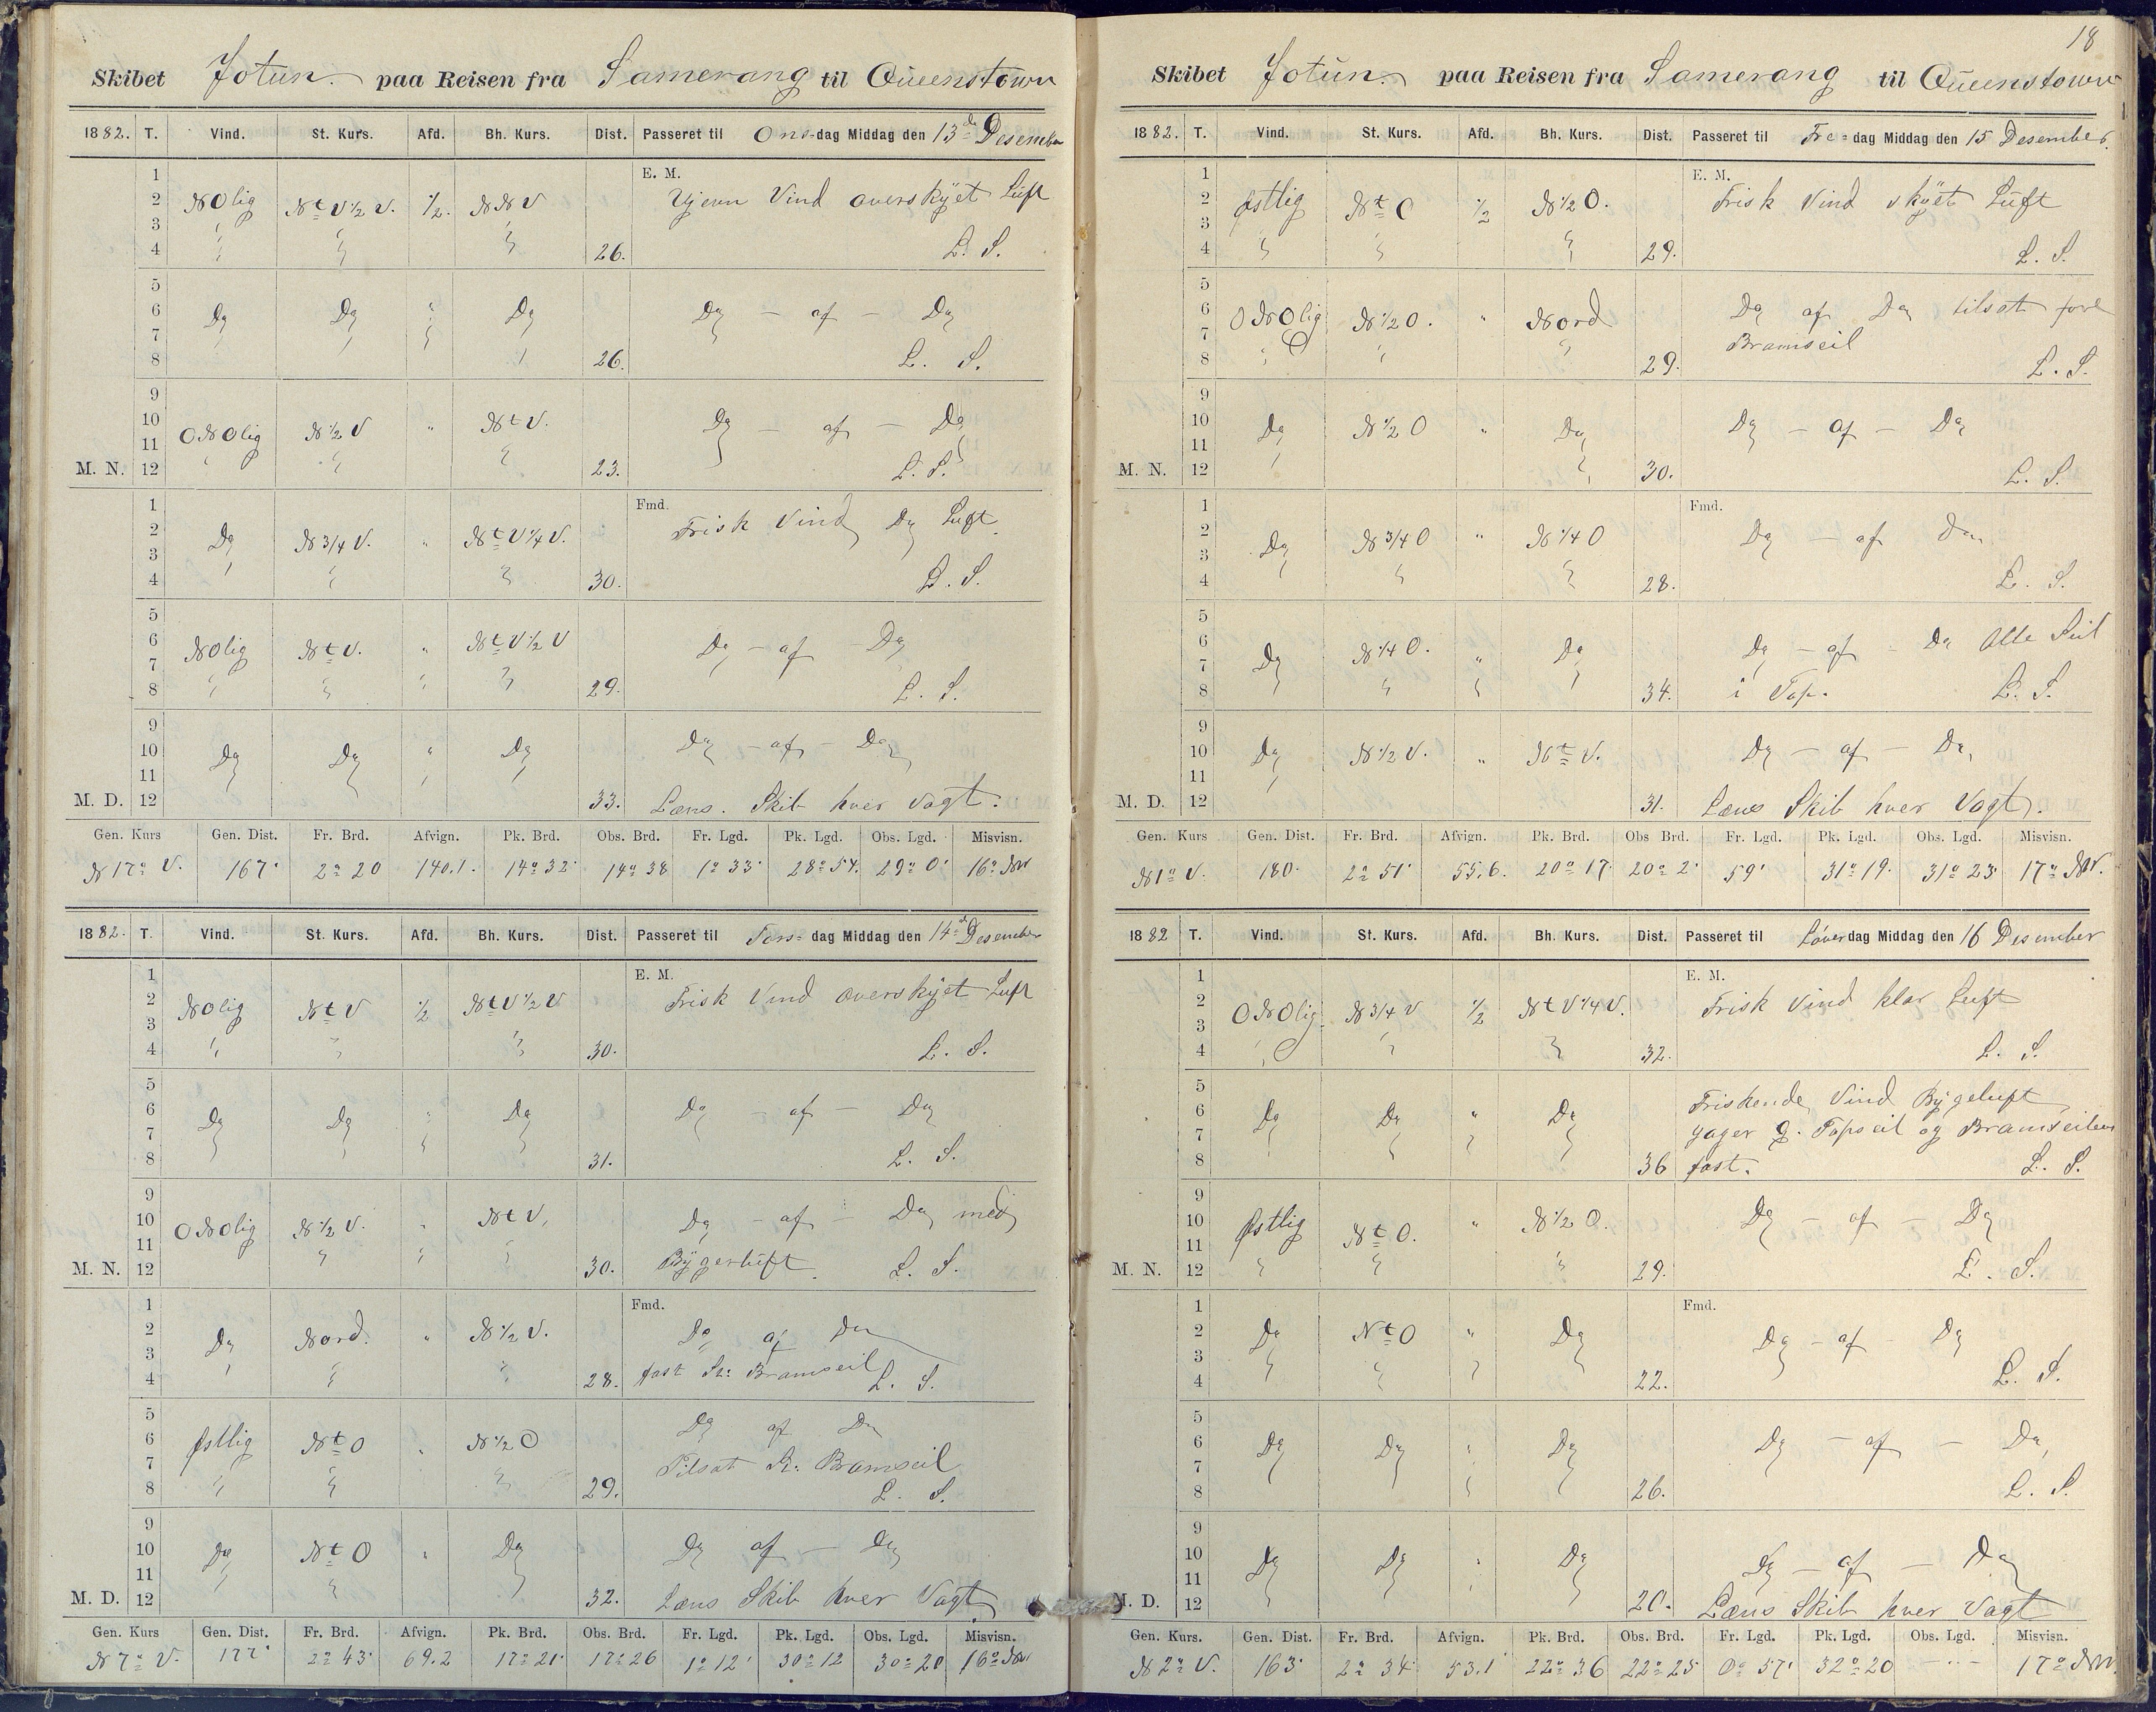 Skibet Jotun. paa Reisen fra Samerang til Queenstown
1882. T. Vind. St. Kurs. Afd. Bh. Kurs. Dist. Passeret til Ons-dag Middag den 13de Desember
E. M.
1
2 NOlig Nt V 1/2 V. 1/2. NNV Ujevn Vind overskyet Luft
3
4 26. L. S.
5
6 Do Do " Do Do — af — Do
7
8 26. L. S.
9
10 ONOlig N 1/2 V " Nt V. Do — af — Do
11
M. N. 12 23. L. S.
Fmd.
1
2 Do N 3/4 V. " Nt V 1/4 V. Frisk Vind Do Luft.
3
4 30. L. S.
5
6 NOlig Nt V. " Nt V 1/2 V Do — af Do
7
8 29. L. S.
9
10 Do Do " Do Do — af — Do
11
M. D. 12 33. Læns. Skib hver Vagt.
Gen. Kurs Gen. Dist. Fr. Brd. Afvign. Pk. Brd. Obs. Brd. Fr. Lgd. Pk. Lgd. Obs. Lgd. Misvisn.
N 17° V. 167' 2° 20 140.1. 14° 32' 14° 38 1° 33' 28° 54. 29° 0' 16° NV
1882. T. Vind. St. Kurs. Afd. Bh. Kurs. Dist. Passeret til Tors= dag Middag den 14de Desember
E. M.
1
2 NOlig Nt V 1/2 Nt V 1/2 V Frisk Vind overskyet Luft
3
4 30. L. S.
5
6 Do Do " Do Do — af — Do
7
8 31. L. S.
9
10 ONOlig N 1/2 V. " Nt V. Do — af — Do med
11
M. N. 12 30. Bygerluft. L. S.
Fmd.
1
2 Do Nord. " N 1/2 V. Do af Do
3
4 28. fast St: Bramseil L. S.
5
6 Østlig Nt O " N 1/2 O Do af Do
7 Tilsat St: Bramseil
8 29. L. S.
9
10 Do Nt O " Do Do af — Do
11
M. D. 12 32. Læns Skib hver Vagt.
Gen. Kurs Gen. Dist. Fr. Brd. Afvign. Pk. Brd. Obs. Brd. Fr. Lgd. Pk. Lgd. Obs. Lgd. Misvisn.
N 7° V. 177' 2° 43' 69.2 17° 21' 17° 26 1° 12' 30° 12 30° 20 16° NV
18
Skibet Jotun. paa Reisen fra Samerang til Queenstown
1882. T. Vind. St. Kurs. Afd. Bh. Kurs. Dist. Passeret til Fre= dag Middag den 15 Desember.
E. M.
1
2 Østlig Nt O 1/2 N 1/2 O. Frisk Vind skyet Luft
3
4 29. L. S.
5
6 ONOlig N 1/2 O. " Nord Do af Do tilsat
7 Bramseil
8 29. L. S.
9
10 Do N 1/2 O " Do Do — af — Do
11
M. N. 12 30. L. S.
Fmd.
1
2 Do N 3/4 O " N 1/4 O Do — af Do
3
4 28. L. S.
5
6 Do N 1/4 O. " Do Do — af - Do Alle Seil
7
8 34. i Top. L. S.
9
10 Do N 1/2 V. " Nt V. Do — af — Do
11
M. D. 12 31. Læns Skib hver Vagt.
Gen. Kurs Gen. Dist. Fr. Brd. Afvign. Pk. Brd. Obs Brd. Fr. Lgd. Pk. Lgd. Obs. Lgd. Misvisn.
N 1° V. 180. 2° 51' 55.6. 20° 17' 20° 2' 59' 31° 19. 31° 23' 17° NV.
1882 T. Vind. St. Kurs. Afd. Bh. Kurs. Dist. Passeret til Löverdag Middag den 16 Desember
E. M.
1
2 ONOlig N 3/4 V 1/2 Nt V 1/4 V. Frisk Vind klar Luft
3
4 32. L. S.
5 Friskende Vind Bygeluft
6 Do Do " Do
7 Gager G. Topseil og Bramseilene
8 36 fast. L. S.
9
10 Østlig Nt O. " N 1/2 O. Do — af — Do
11
M. N. 12 29. L. S.
Fmd.
1
2 Do Nt O " Do Do — af - Do
3
4 22. L. S.
5
6 Do Do " Do Do — af — Do
7
8 26. L. S.
9
10 Do Do " Do Do — af — Do
11
M. D. 12 20. Læns Skib hver Vagt
Gen. Kurs. Gen. Dist. Fr. Brd. Afvign. Pk. Brd. Obs. Brd. Fr. Lgd. Pk. Lgd. Obs. Lgd. Misvisn.
N 2° V. 163' 2° 34' 53.1 22° 36 22° 25 0° 57' 32° 20 — 17° NV.